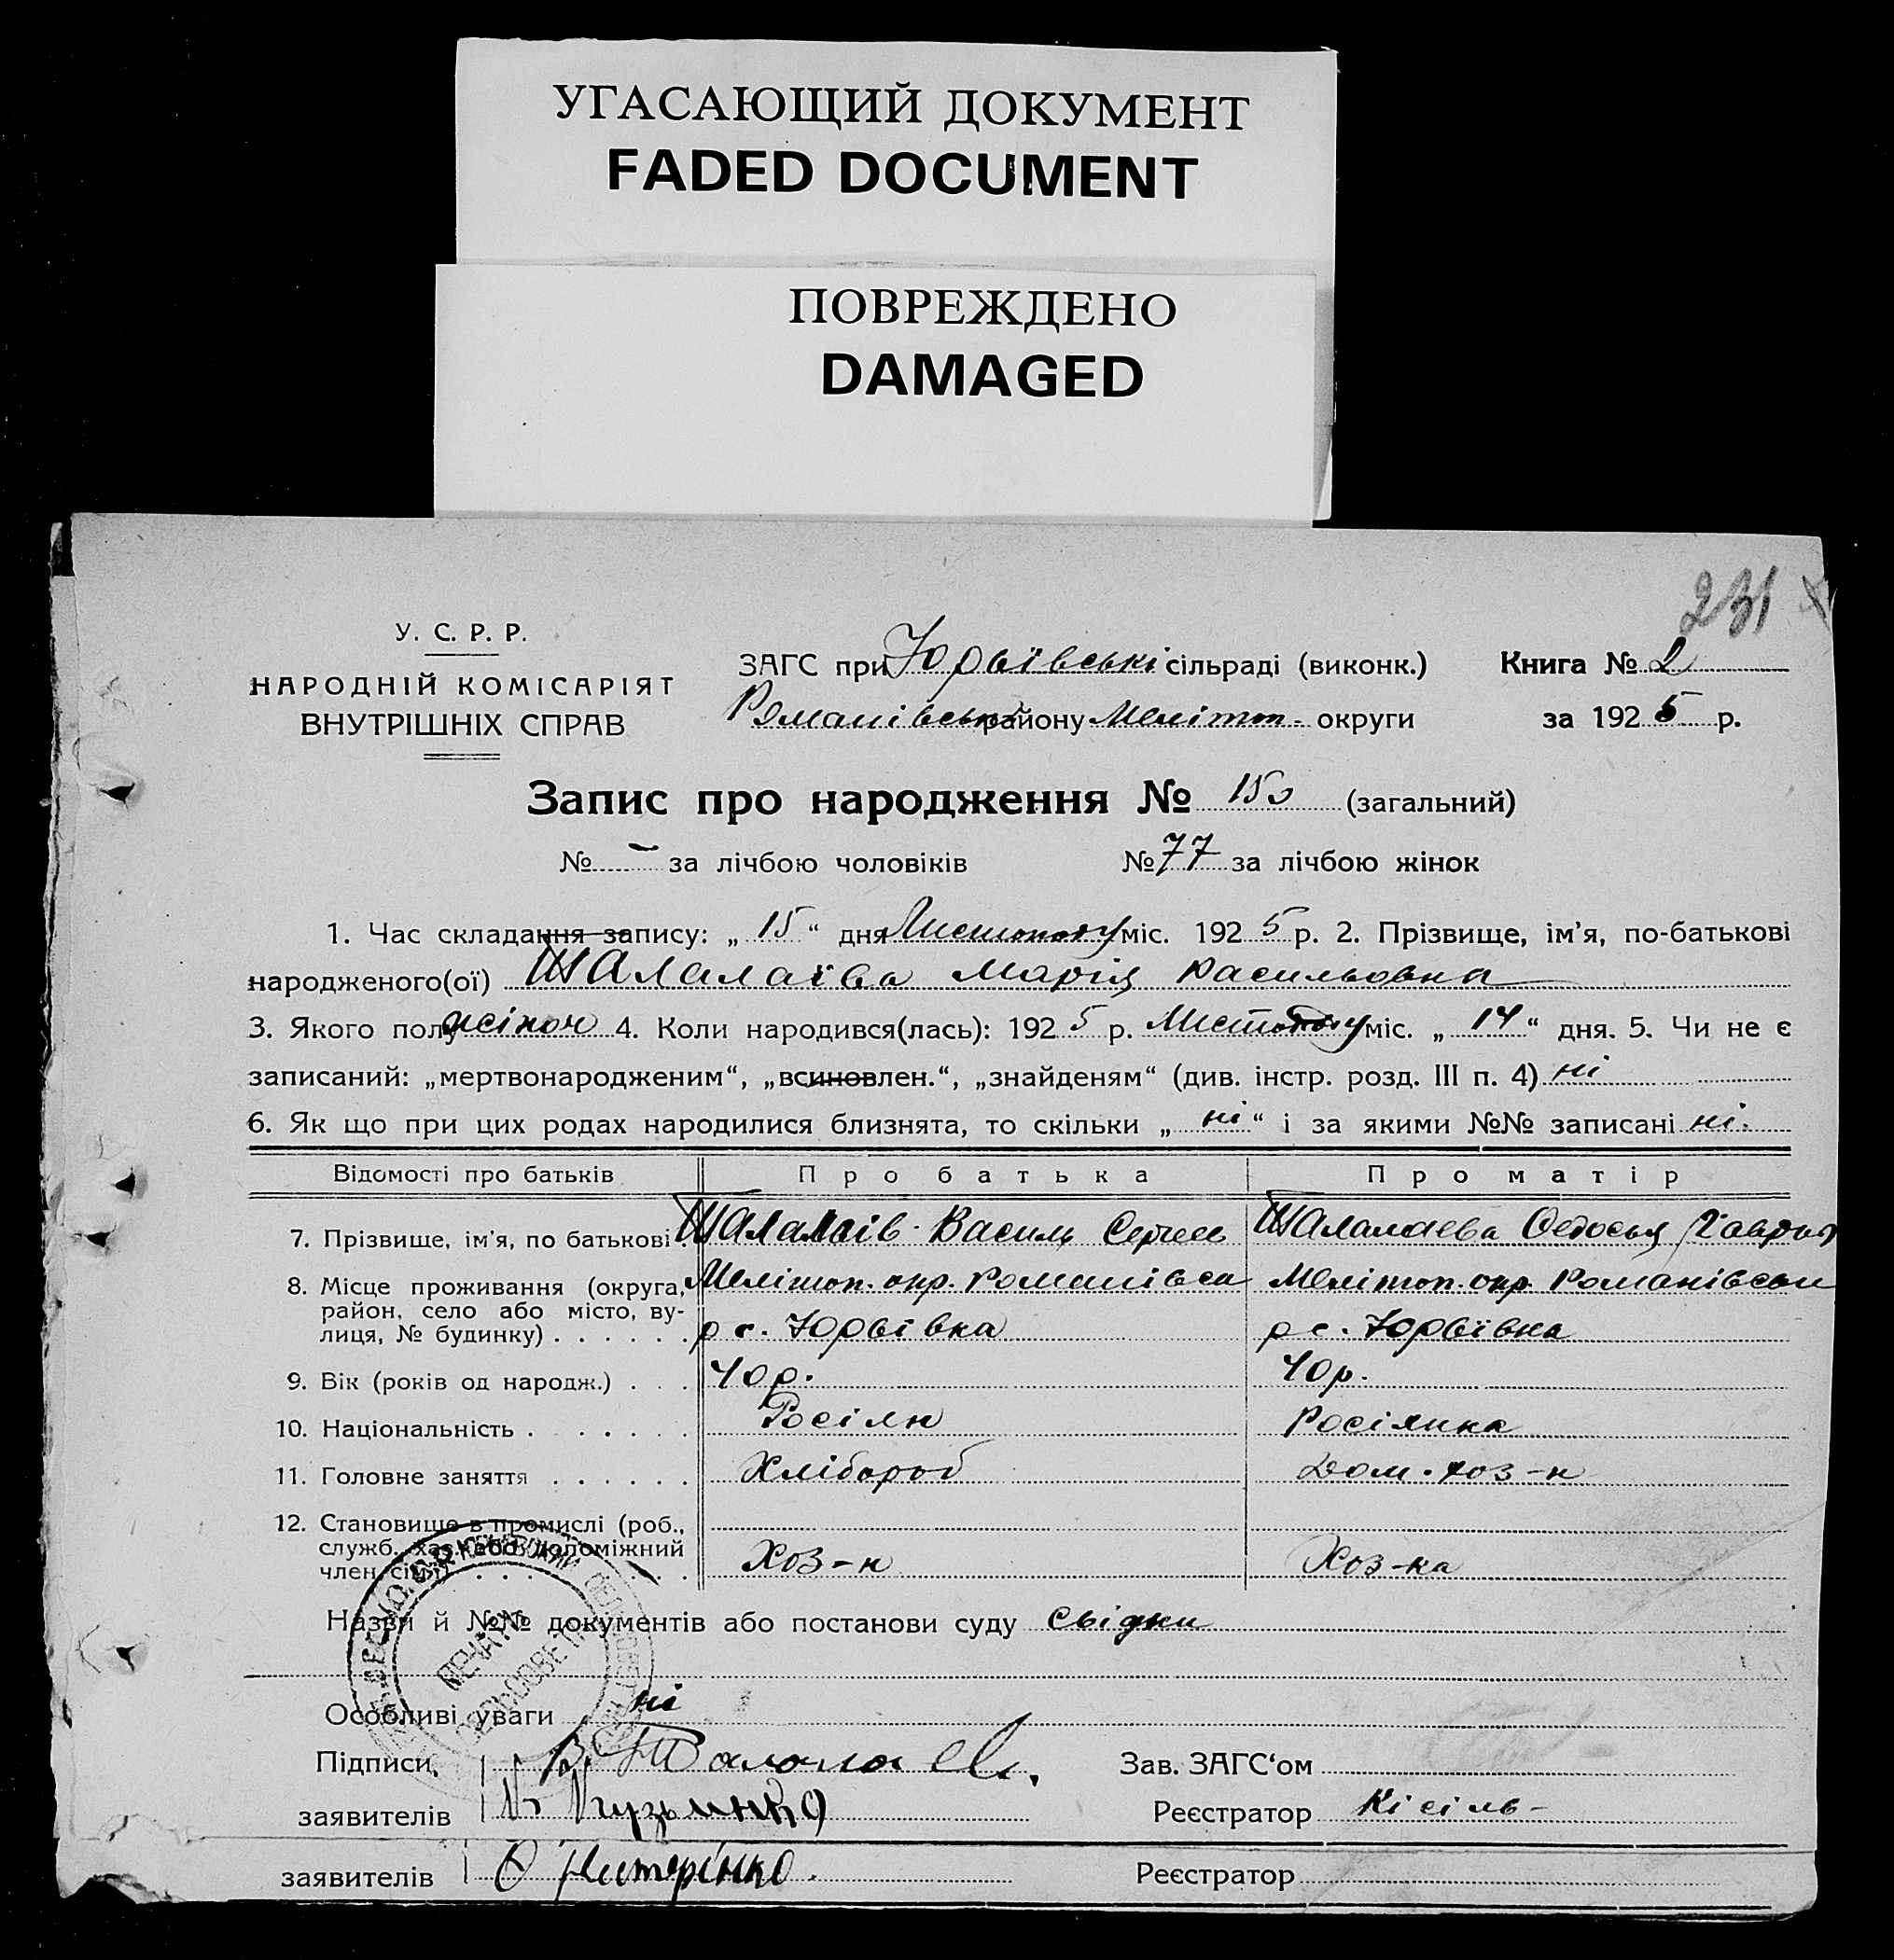 УГАСАЮЩИЙ ДОКУМЕНТ
FADED DOCUMENT
ПОВРЕЖДЕНО
DAMAGED
231
У. С. Р. Р.
НАРОДНІЙ КОМІСАРІЯТ
ВНУТРІШНІХ СПРАВ
ЗАГС при Юрьївські сільраді (виконк.) Книга № 2
Романівськ району Мелітоп- округи за 1925 р.
Запис про народження № 150 (загальний)
№ - за лічбою чоловіків № 77 за лічбою жінок
1. Час складання запису: „ 15 “ дня Листопаду міс. 1925 р. 2. Прізвище, ім’я, по-батькові
народженого(ої) Шалалаїва Марія Васильовна
3. Якого полу жіноч 4. Коли народився(лась): 1925 р. Листопаду міс. „ 14 “ дня. 5. Чи не є
записаний: „мертвонародженим“, „всиновлен.“, „знайденям“ (див. інстр. розд. III п. 4) ні
6. Як що при цих родах народилися близнята, то скільки „ ні “ і за якими №№ записані ні.
Відомості про батьків Про батька Про матір
7. Прізвище, ім’я, по батькові . Шалалаїв Василь Сергее Шалалаева Федосья Гаврил
8. Місце проживання (округа, район, село або місто, вулиця, № будинку) . . . . . . Мелітоп. окр. Романівськ Мелітоп. окр. Романівськи
р с. Юрьївка р с. Юрьївка
9. Вік (років од народж.) . . . 40 р. 40 р.
10. Національність . . . . . . . Росіян Росіянка
11. Головне заняття . . . . . . Хлібороб Дом. хоз-н
12. Становище в промислі (роб., служб., хаз. або допоміжний член сім’ї) . . . . . . . Хоз-н Хоз-ка
Назви й №№ документів або постанови суду свідки
Особливі уваги ні
ПЕЧАТЬ
Підписи, В. Шалалаев. Зав. ЗАГС‘ом
заявителів Кузьминко Реєстратор Кісіль-
заявителів Реєстратор